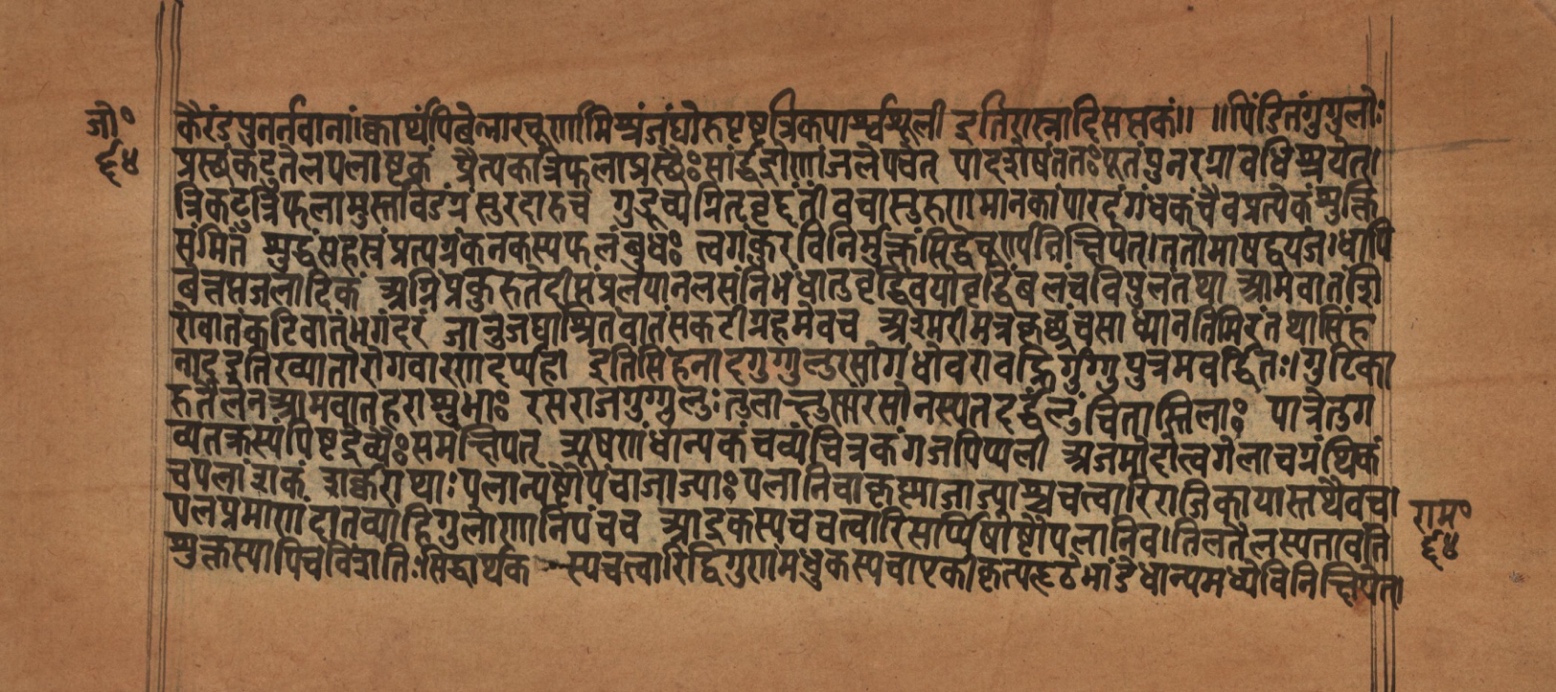 जो॰
६४
कैरंडपुनर्नवानां।क्वाथंपिबेन्नारचूर्णमिश्रंजंघोरुपृष्टत्रिकपार्श्वशूली इतिरास्नादिसप्तकं॥ ॥पिंडितंगुग्गुलोः
प्रस्थंकटुतैलपलाष्टकं प्रैत्पकात्रिफलाप्रस्थैःसार्द्धद्रोणंजलेपचेत् पादशेषंततःपूतंपुनरग्रावधिश्रयेत्।
त्रिकटुत्रिफलामुस्ताविडंगंसुरदारुच गुडूच्यग्नितृवृद्दंतीवचासुरुणमानकं।पारदंगंधकंचैवप्रत्येकंशुक्ति
संमितं शुद्धंसहस्रंप्रत्यग्रंकनकस्यफलंबुधः त्वगंकुरविनिर्मुक्तंसिद्धेचूर्णंविनिक्षिपेत्।ततोमाषद्वयंज।ध्वापि
बेत्तप्तजलादिकं अग्निंप्रकुरुतेदीप्तंप्रलयानलसंनिभंधातुवृद्धिंवयोवृद्धिंबलंचविपुलंतथा आमवातंशि
रोवातंकटिवातंभगंदरं जानुजंघाश्रितंवातंसकटीग्रहमेवच अश्मरीमूत्रकृछ्रंचसाध्यानतिमिरंतथासिंह
नादइतिख्यातोरोगवारणदर्प्पहा इतिसिंहनादगुग्गुलुरसोगंधोवरावह्निर्गुग्गुपुत्रमवर्द्धितः।गुटिका
रुतैलेनआमवातहराशुभाः रसराजगुग्गुलुःतुलार्द्धसारसोनस्यतदर्द्धंलुंचितास्तिलाः पात्रेतुग
व्यतक्रस्यपिष्टद्रव्यैःसमंक्षिपेत् त्र्यूषणंधान्यकंचव्यंचित्रकंगजपिप्पली अजमोदात्वगेलाचग्रंथिकं
चपलांशकं शर्कराथाःपलान्यष्टौपंचाजाज्याःपलानिचाकृष्णाजाज्याश्चचत्वारिराजिकायास्तथैवच।
पलप्रमाणंदातव्याहिंगुलोणानिपंचच आर्द्रकस्यचचत्वारिसर्प्पिषोष्टौपलानिच।तिलतैलस्यतावति
शुक्तस्यापिचविंशतिः।सिद्धार्थक-स्यचत्वारिद्विगुणंमधुकस्यचाएकीकृत्यदृढेभांडेधान्यमध्येविनिक्षिपेत्।
राम॰
६४